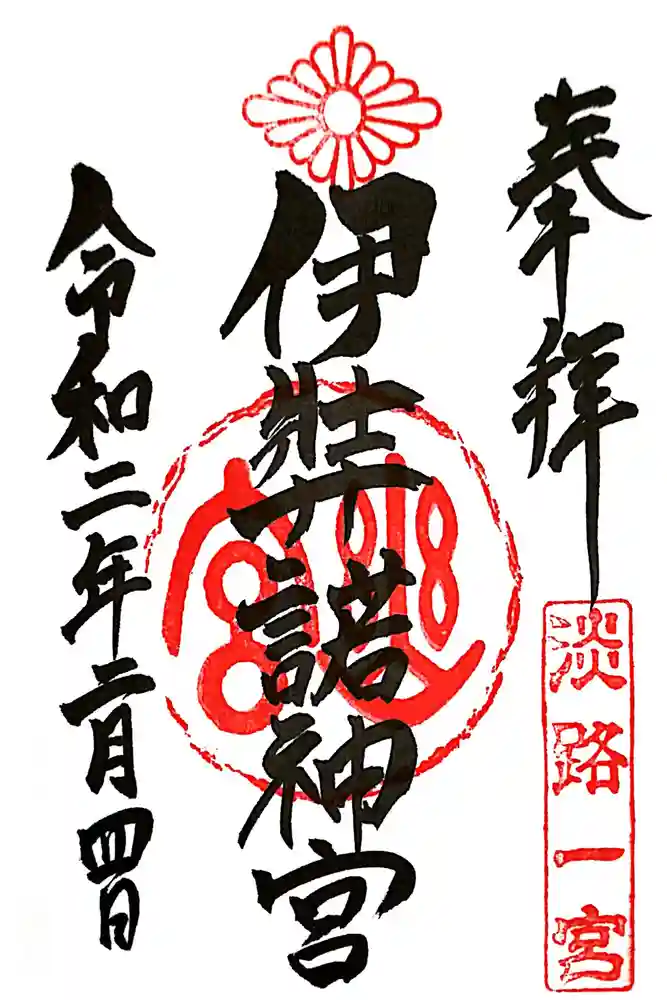 奉拝
淡路一宮
伊弉諾神宮
幽宮
令和二年二月四日